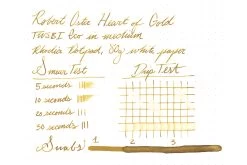 Robert Oster Heart of Gold
TWSBI Eco in medium
Rhodia Dotpad, 80g white paper
Smear Test Drip Test
5 seconds
10 seconds
20 seconds
30 seconds
Swabs 1 2 3